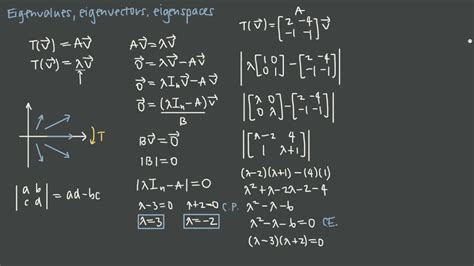 Eigenvalues, eigenvectors, eigenspaces
T(v⃗) = Av⃗
T(v⃗) = λv⃗
↑
T
|a b|
|c d| = ad-bc
Av⃗ = λv⃗
O⃗ = λv⃗ - Av⃗
O⃗ = λIₙv⃗ - Av⃗
O⃗ = (λIₙ - A)v⃗
B
Bv⃗ = O⃗
|B| = 0
|λIₙ - A| = 0
λ-3=0 λ+2=0
λ=3 λ=-2
A
T(v⃗) = [2 -4; -1 -1] v⃗
|λ[1 0; 0 1] - [2 -4; -1 -1]|
|[λ 0; 0 λ] - [2 -4; -1 -1]|
|λ-2 4|
|1 λ+1|
(λ-2)(λ+1) - (4)(1)
λ²+λ-2λ-2-4
C.P. λ²-λ-6
λ²-λ-6=0 C.E.
(λ-3)(λ+2)=0